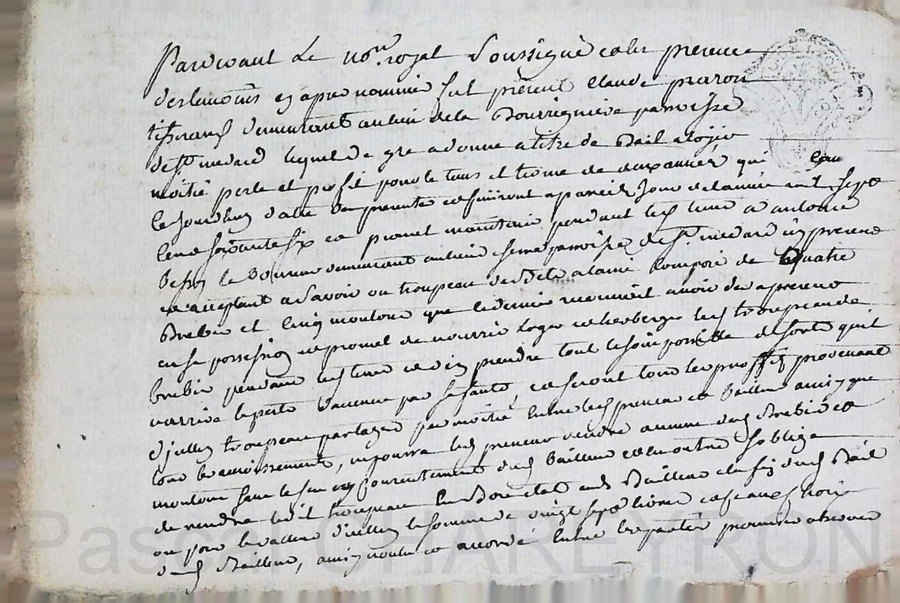 Pardevant le nore. royal soussigné et les presence
des temoins cy apres nommés fut présent claude
tisserand demeurant au lieu de la paroisse
de st. medard lequel de gré a donné a titre de Bail a loyer
moitié perte et profit pour le tems et terme de deux années qui
le jourdhuy datte des presentes et finiront a pareil jour de lannée mil sept
cens soixante six et promet maintenir pendant led terme a antoine
demeurant au lieu et paroisse de st. medard icy présent
et acceptant a savoir un troupeau de Bete a laine composé de Quatre
Brebis et cinq moutons que le dernier reconnoit avoir des a present
en sa possession et promet de nourrir loger et heberger led troupeau de
brebis pendant led tems et d'en prendre tout le soin possible de sorte qu'il
n'arrive la perte daucune par sa faute, et seront tous les proffits provenant
d'icelluy troupeau partagés par moitié entre led preneur et bailleur ainsy que
tous les accroissements, ne pourra led preneur vendre aucune desd Brebis et
moutons sans le consentement dud bailleur et en outre soblige
de rendre led troupeau en Bon etat aud Bailleur a la fin dud Bail
ou pour la valleur d'icelluy la somme de vingt sept livres et ce aux choix
dud Bailleur, ainsy voulu et accordé entre les parties promis observer
Pascal CHAREYRON